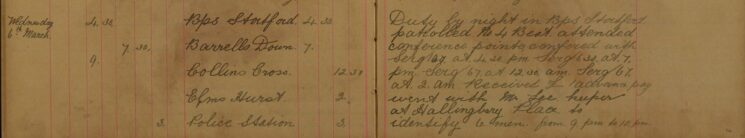 Wednesday 4. 30. Bps Stortford. 4. 30
6th March.
7. 30. Barrells Down. 7.
9. Collins Cross. 12 30
Elms Hurst 2.
3. Police Station 3.
Duty by night in Bps Stortford
patrolled No 4 Beat attended
conference points confered with
Serg 67. at 4.30 pm Serg 38. at 7.
pm Serg 67. at 12.30 am. Serg 67.
at 2 am Received advance pay
went with Mr Lee keeper
at Hallingbury Place to
identify 6 men. from 9 pm to 12 pm